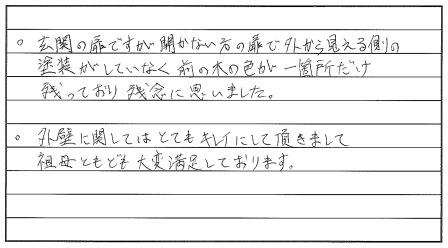 。玄関の扉ですが開かない方の扉で外から見える側の
塗装がしていなく前の木の色が一箇所だけ
残っており残念に思いました。
。外壁に関してはとてもキレイにして頂きまして
祖母ともども大変満足しております。